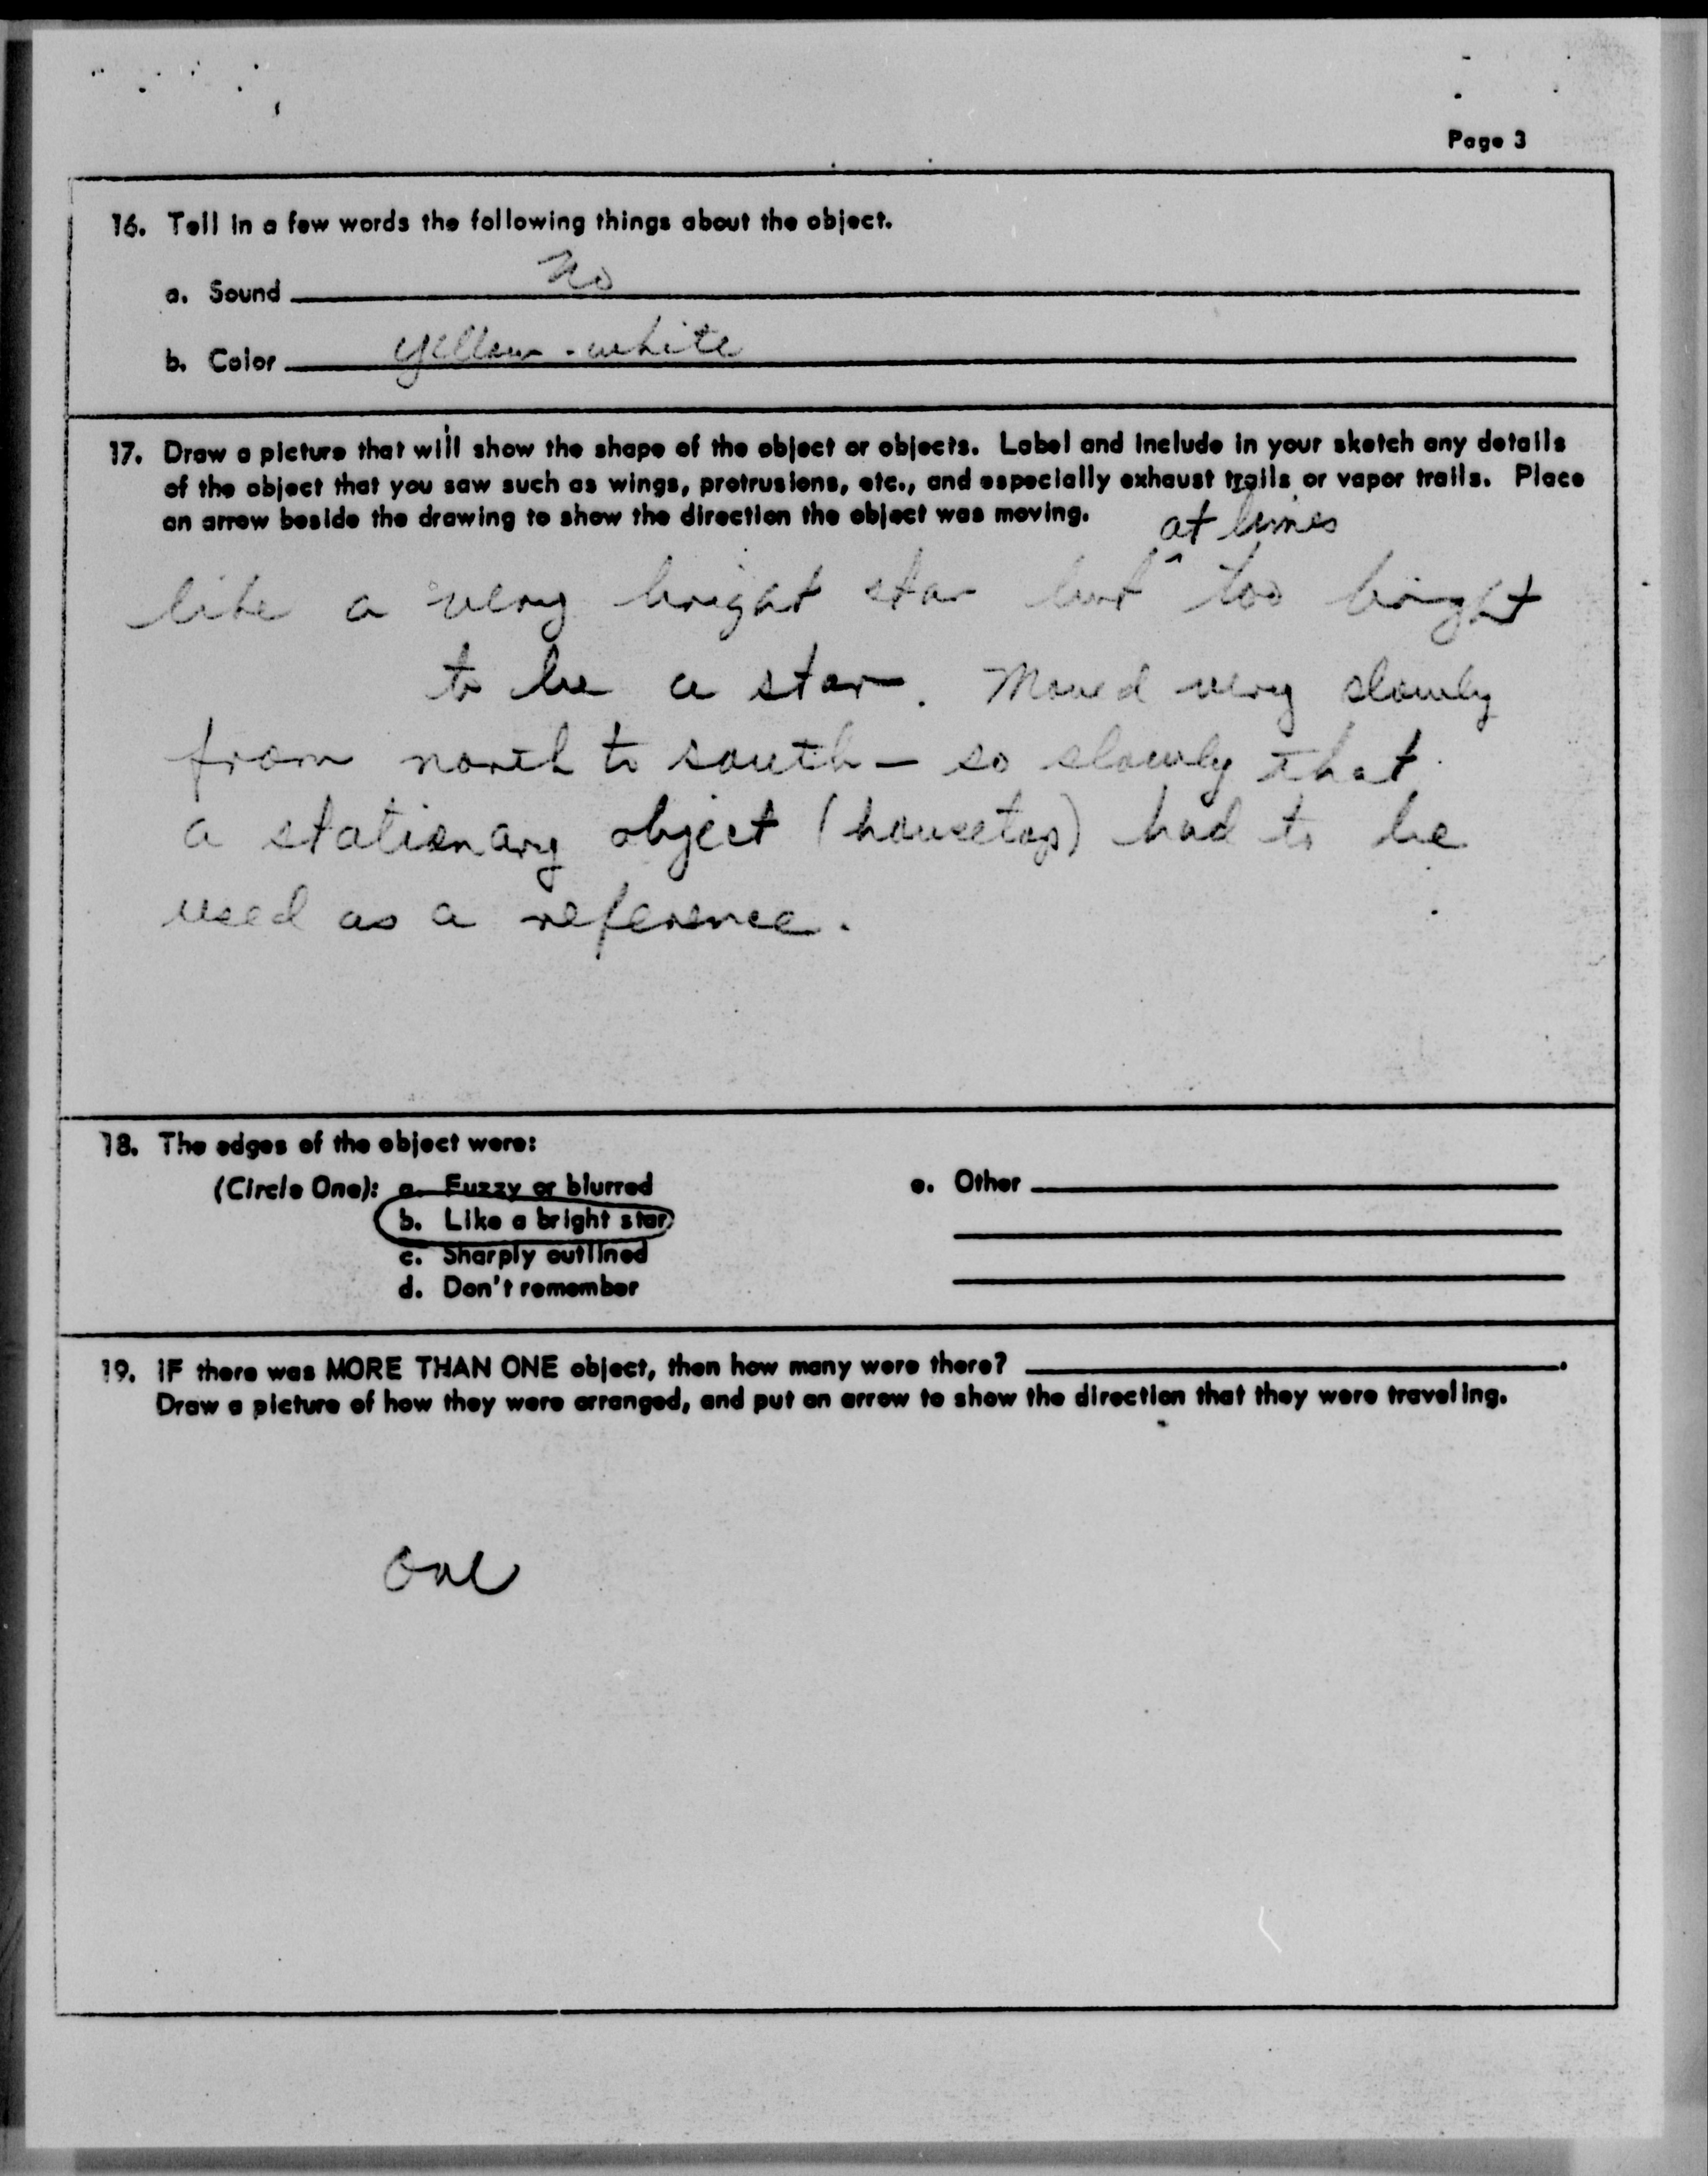 Page 3
16. Tell in a few words the following things about the object.
a. Sound no
b. Color yellow-white
17. Draw a picture that will show the shape of the object or objects. Label and include in your sketch any details
of the object that you saw such as wings, protrusions, etc., and especially exhaust trails or vapor trails. Place
an arrow beside the drawing to show the direction the object was moving.
at times
like a very bright star but ^ too bright
to be a star. Moved very slowly
from north to south - so slowly that
a stationary object (housetop) had to be
used as a reference.
18. The edges of the object were:
(Circle One): a. Fuzzy or blurred
b. Like a bright star
c. Sharply outlined
d. Don't remember
e. Other
19. IF there was MORE THAN ONE object, then how many were there?
Draw a picture of how they were arranged, and put an arrow to show the direction that they were traveling.
one